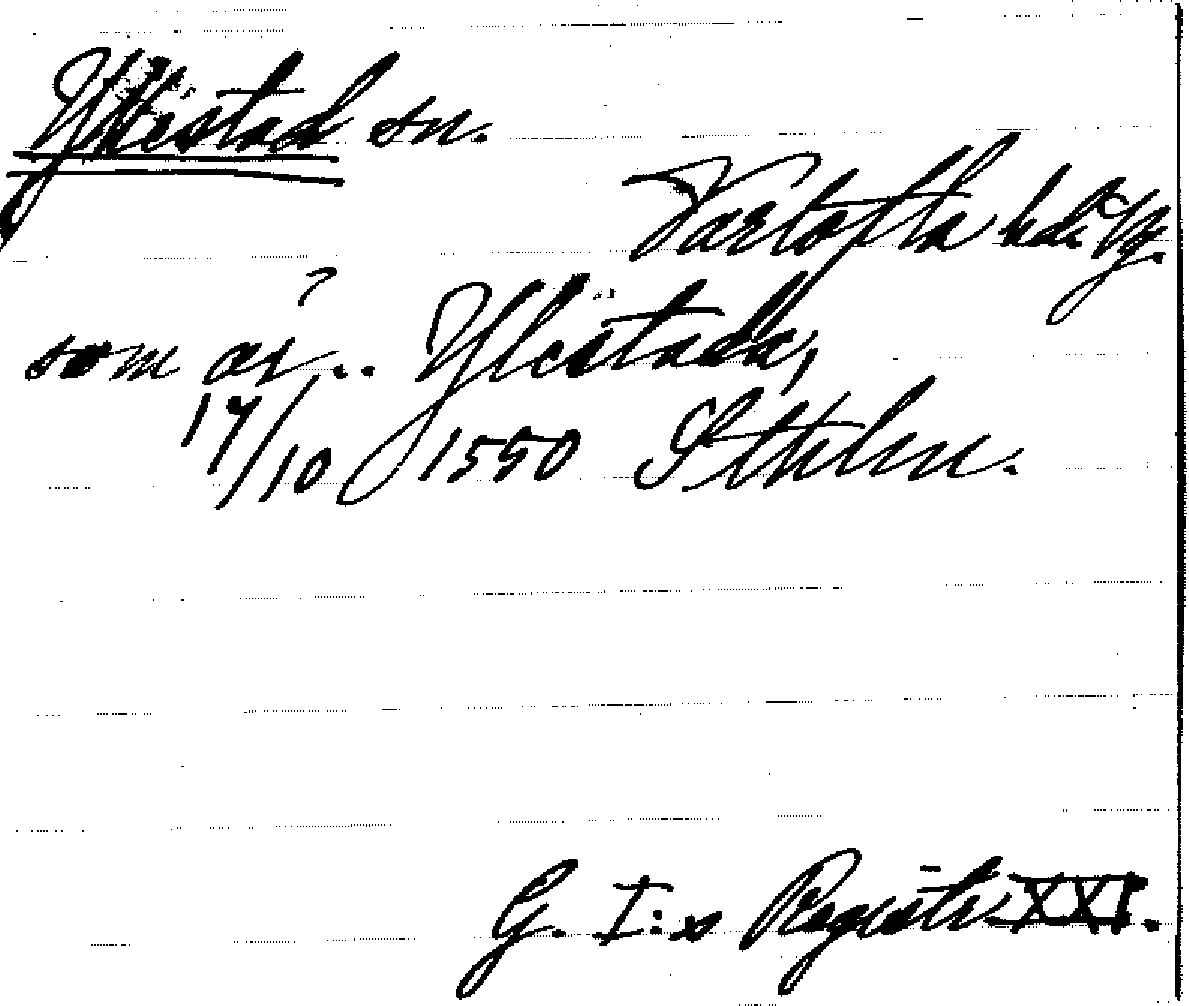 Yllestad sn.
Vartofta hd. Vg.
som är .. Ylestada,
17/10 1550 Sthlm.
G. I:s Registr. XXI.